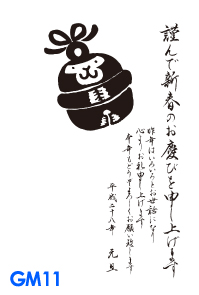 謹んで新春のお慶びを申し上げます
昨年はいろいろとお世話になり
心よりお礼申し上げます
本年もどうぞよろしくお願い致します
平成二十八年 元旦
GM11